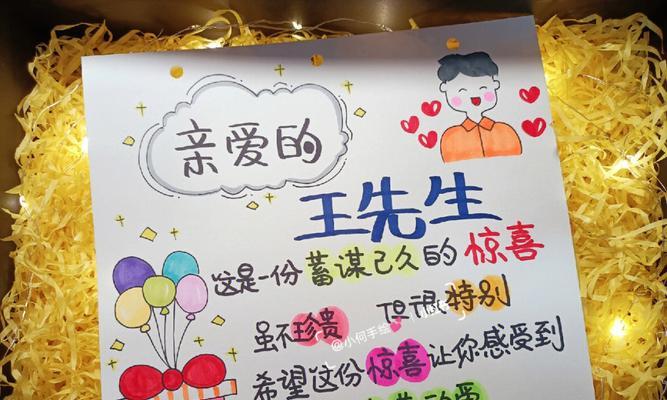 亲爱的
王先生
这是一份蓄谋已久的惊喜
虽不珍贵 但很特别
@小何手绘
希望这份惊喜让你感受到